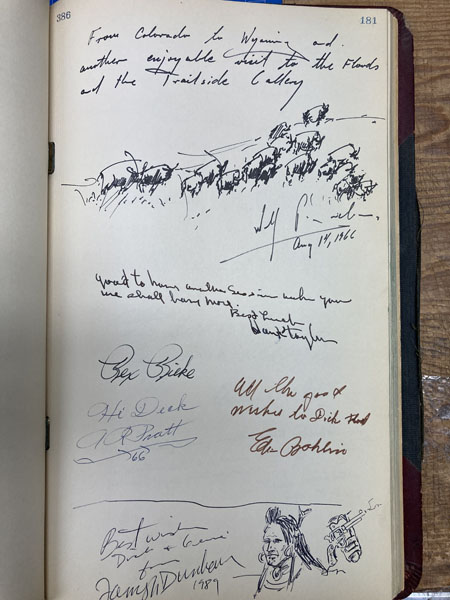 386
181
From Colorado to Wyoming and
another enjoyable visit to the Floods
and the Trailside Gallery
Aug 14, 1966
good to have another session with you
we shall have more.
Best Luck
Hank Taylor
Rex Rieke
Hi Dick
Pratt
66
All the good
wishes to Dick Flood
Ed Bohlin
Best wishes
Dick &
from
Dunham
1989